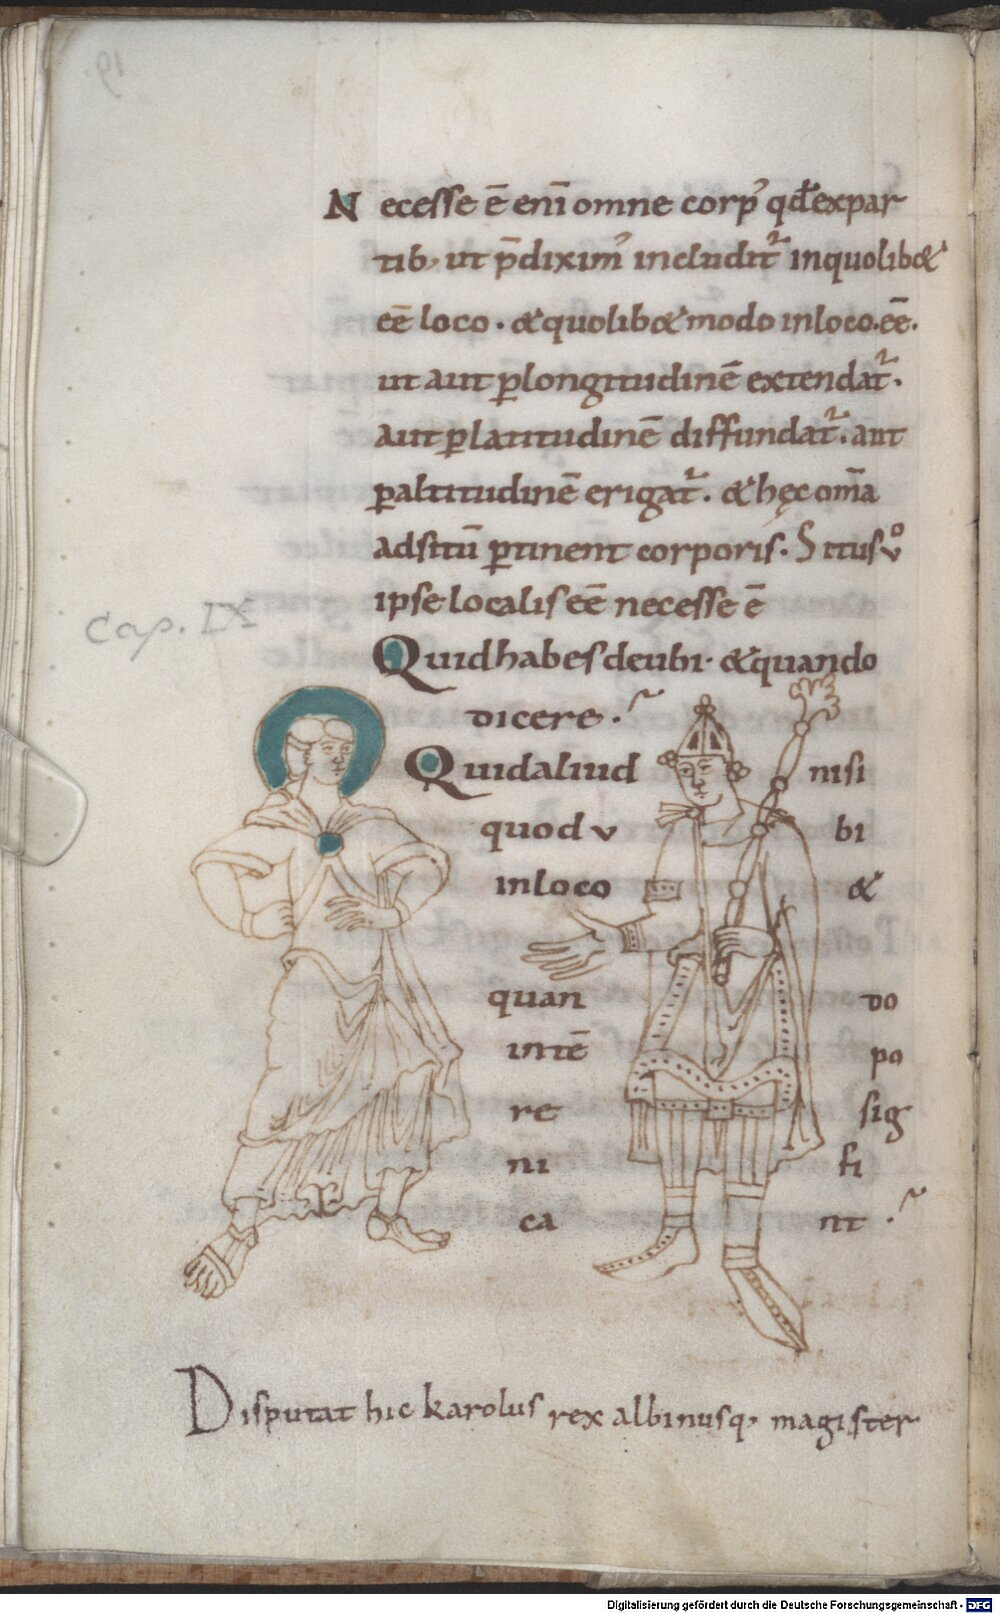 Necesse ē enī omne corpꝰ qđ expar
tib; ut p̄diximꝰ includit᷑ inquolib&
eē loco. &quolib& modo inloco.eē.
ut aut ꝑlongitudinē extendat᷑.
aut ꝑlatitudinē diffundat᷑. aut
ꝑaltitudinē erigat᷑. & hęc om̄a
adsitū ꝑtinent corporis. Situs vͦ
ipse localis eē necesse ē
Cap. IX
Quid habes de ubi. &quando
dicere.
Quid aliud nisi
quod v bi
inloco &
quan do
intē po
re sig
ni fi
ca nt.
Disputat hic karolus rex albinusq; magister
19
Digitalisierung gefördert durch die Deutsche Forschungsgemeinschaft - DFG